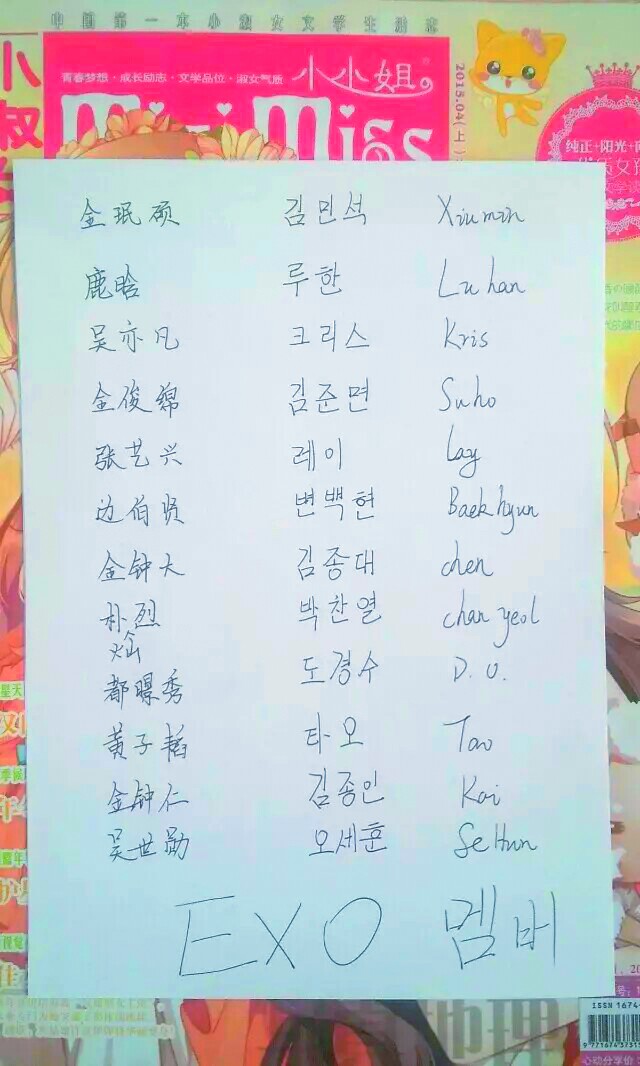 中国第一本小淑女文学生活志
青春梦想·成长励志·文学品位·淑女气质
小小姐
Mini Miss
2015.04(上)
小淑女
纯正+阳光+
金珉硕 김민석 Xiumin
鹿晗 루한 Lu han
吴亦凡 크리스 Kris
金俊绵 김준면 Suho
张艺兴 레이 Lay
边伯贤 변백현 Baekhyun
金钟大 김종대 chen
朴烈 박찬열 chan yeol
灿
都暻秀 도경수 D.O.
黄子韬 타오 Tao
金钟仁 김종인 Kai
吴世勋 오세훈 SeHun
EXO 멤버
ISSN 1674-
9 771674 3731
心动分享价: